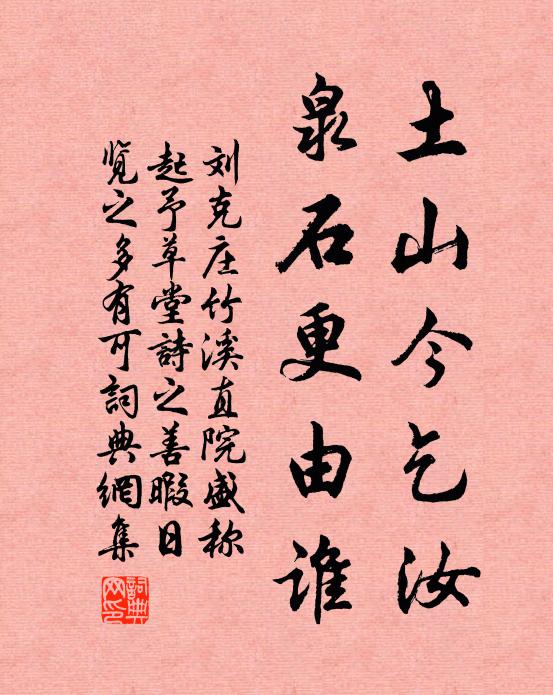 土山今乞汝
泉石更由谁
刘克庄竹溪直院盛称
起予草堂詩之善暇日
览之多有可詞典網集
詞典網印